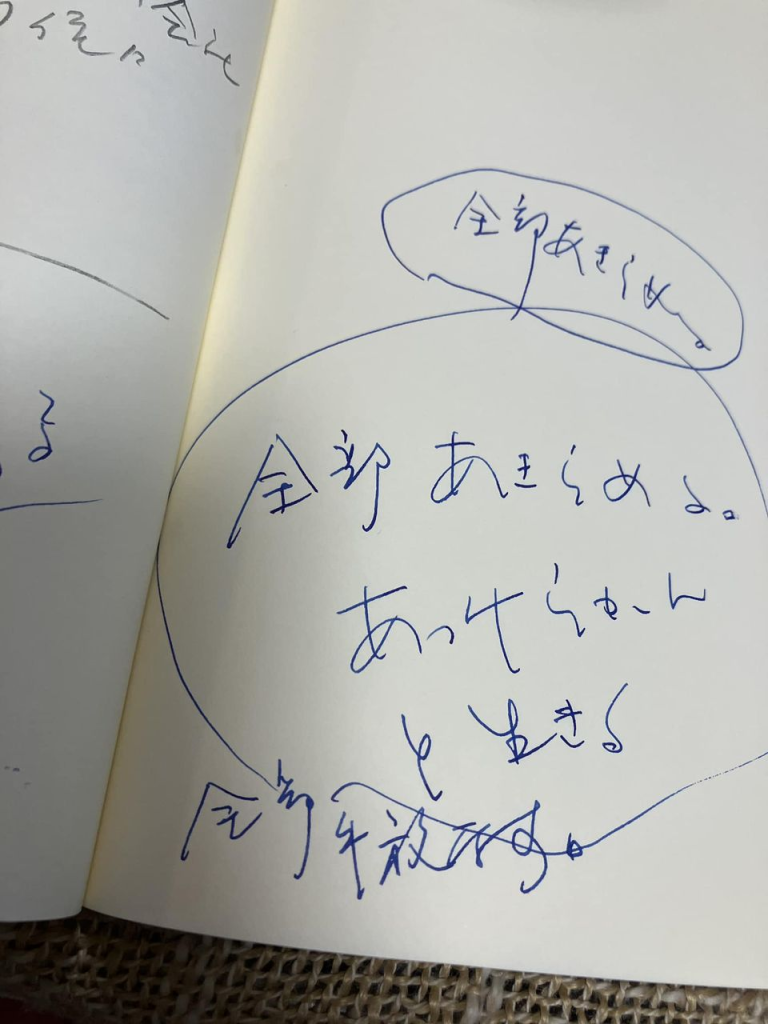 る
全部あきらめる。
全部 あきらめる。
あっけらかん
と 生きる
全部手放す。